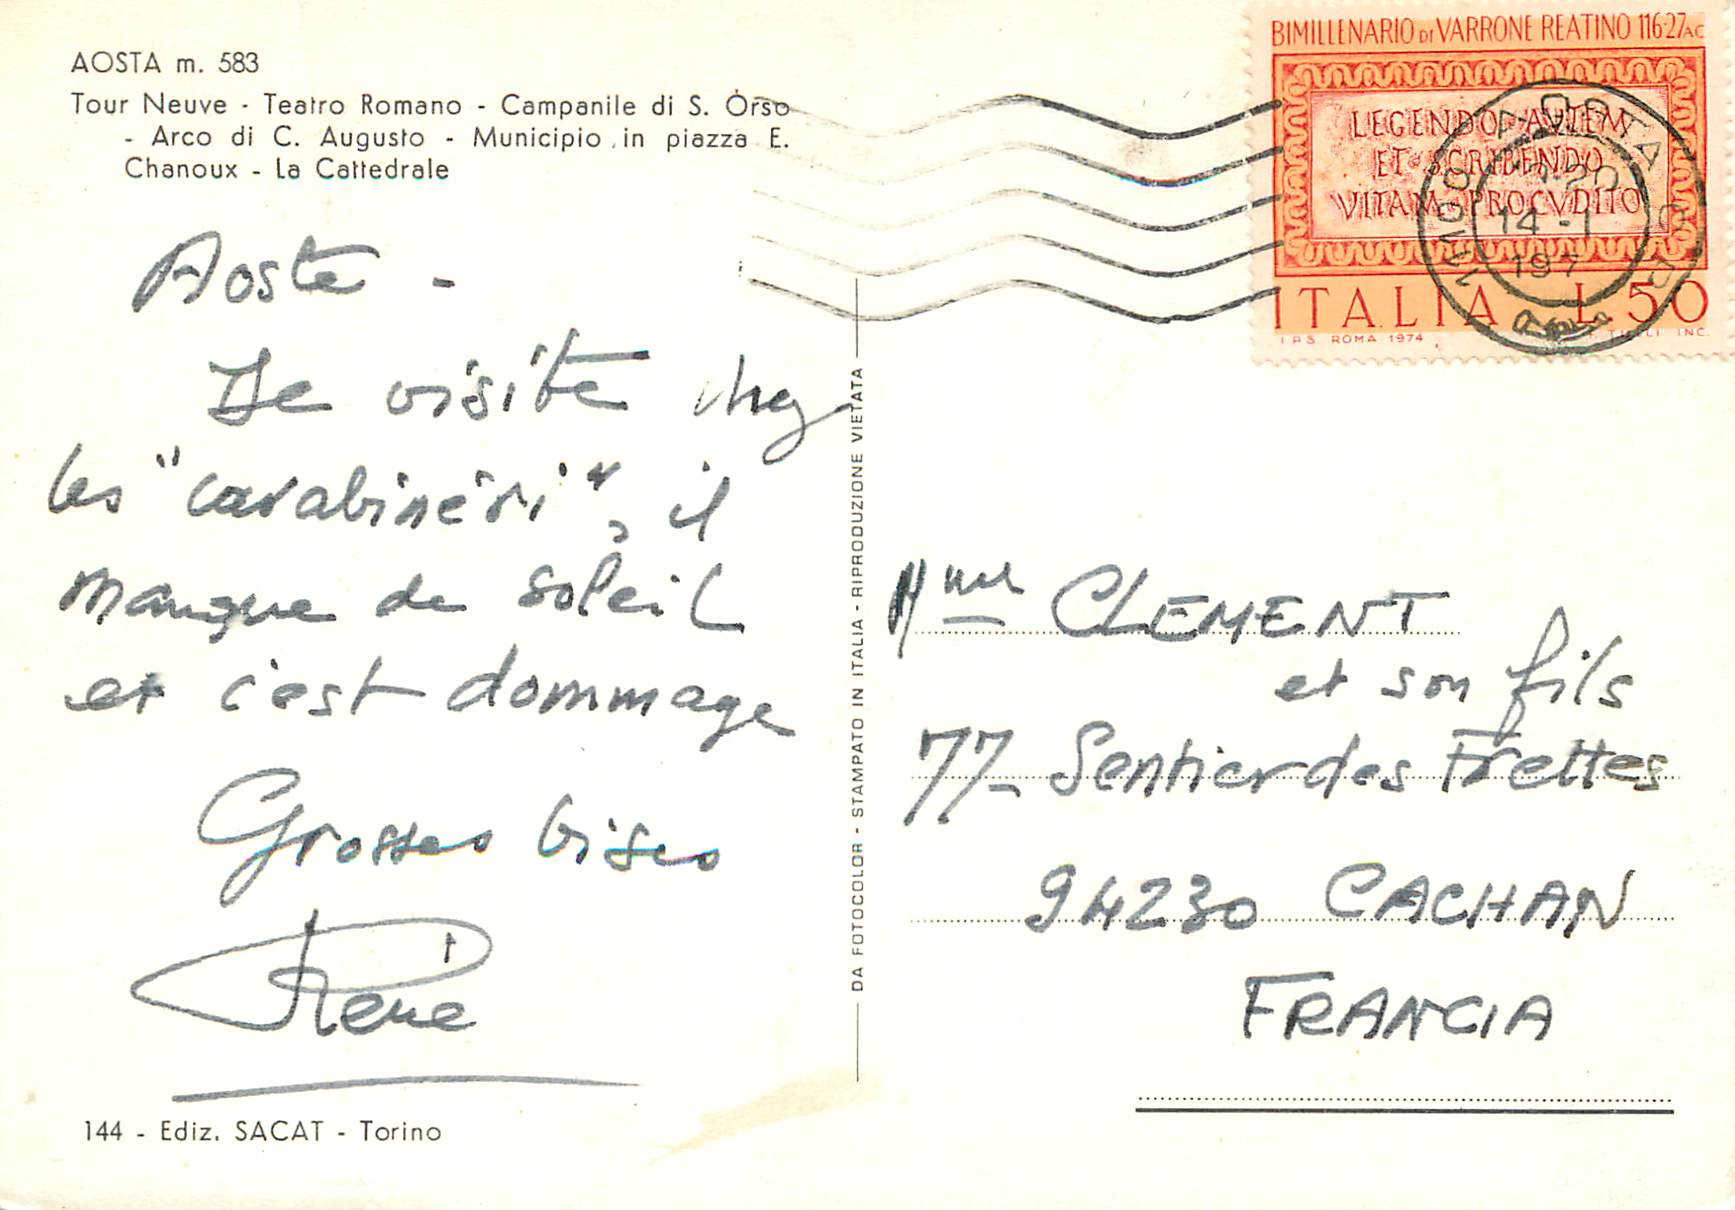 AOSTA m. 583
Tour Neuve - Teatro Romano - Campanile di S. Orso
- Arco di C. Augusto - Municipio in piazza E.
Chanoux - La Cattedrale
BIMILLENARIO DI VARRONE REATINO 116-27 AC
LEGENDO AVTEM
ET SCRIBENDO
VITAM PROCVDITO
ITALIA L.50
I.P.S. ROMA 1974
INC.
14 -1
197
Aoste -
Je visite chez
les "carabinéri", il
manque de soleil
et c'est dommage
Grosses bises
René
144 - Ediz. SACAT - Torino
DA FOTOCOLOR - STAMPATO IN ITALIA - RIPRODUZIONE VIETATA
Mme CLEMENT
et son fils
77- Sentier des Frettes
94230 CACHAN
FRANCIA